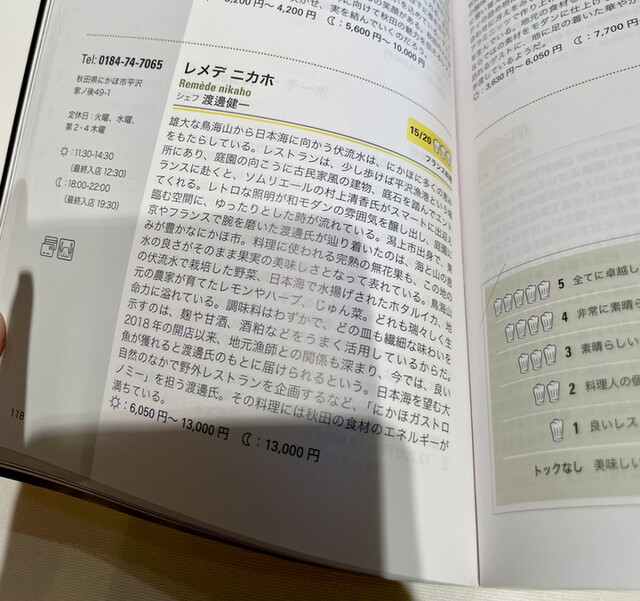 5,200円〜4,200円 ☾：5,600円〜10,000円
Tel: 0184-74-7065
秋田県にかほ市平沢
家ノ後49-1
定休日：火曜、水曜、
第2・4木曜
☼：11:30-14:30
(最終入店 12:30)
☾：18:00-22:00
(最終入店 19:30)
レメデ ニカホ
Remède nikaho
シェフ 渡邊健一
15/20
フランス料理
雄大な鳥海山から日本海に向かう伏流水は、にかほに多くの恵み
をもたらしている。レストランは、少し歩けば平沢漁港という場
所にあり、庭園の向こうに古民家風の建物、庭石を踏んでエント
ランスに赴くと、ソムリエールの村上清香氏がスマートに出迎え
てくれる。レトロな照明が和モダンの雰囲気を醸し出し、庭園に
臨む空間に、ゆったりとした時が流れている。潟上市出身で、東
京やフランスで腕を磨いた渡邊氏が辿り着いたのは、海と山の恵
みが豊かなにかほ市。料理に使われる完熟の無花果も、この地の
水の良さがそのまま果実の美味しさとなって表れている。鳥海山
の伏流水で栽培した野菜、日本海で水揚げされたホタルイカ、地
元の農家が育てたレモンやハーブ、じゅん菜。どれも瑞々しく生
命力に溢れている。調味料はわずかで、どの皿も繊細な味わいを
示すのは、麹や甘酒、酒粕などをうまく活用しているからだ。
2018年の開店以来、地元漁師との関係も深まり、今では、良い
魚が獲れると渡邊氏のもとに届けられるという。日本海を望む大
自然のなかで野外レストランを企画するなど、「にかほガストロ
ノミー」を担う渡邊氏。その料理には秋田の食材のエネルギーが
満ちている。
☼：6,050円〜13,000円 ☾：13,000円
118
3,630円〜6,050円 ☾：7,700円
5 全てに卓越し
4 非常に素晴ら
3 素晴らしい
2 料理人の個
1 良いレス
トックなし 美味しい